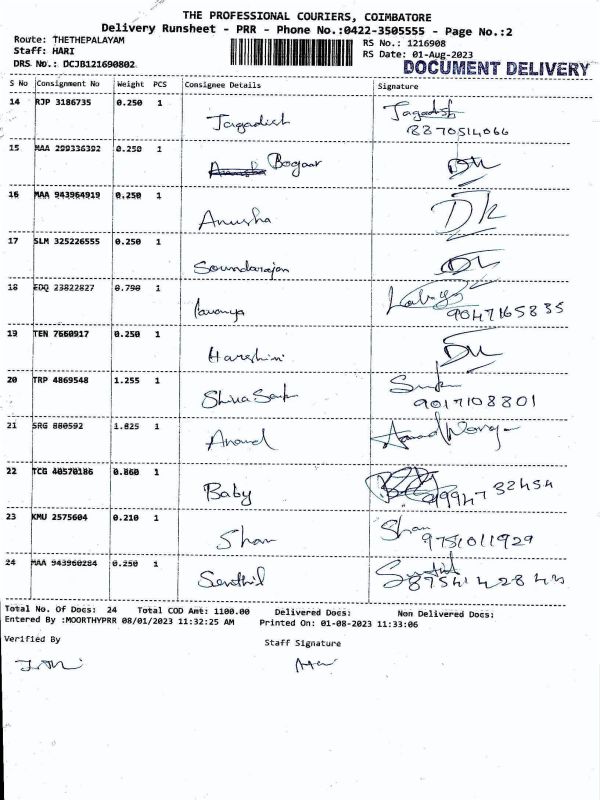 THE PROFESSIONAL COURIERS, COIMBATORE
Delivery Runsheet - PRR - Phone No.:0422-3505555 - Page No.:2
Route: THETHEPALAYAM
Staff: HARI
DRS No.: DCJB121690802
RS No.: 1216908
RS Date: 01-Aug-2023
DOCUMENT DELIVERY
S No Consignment No Weight PCS Consignee Details Signature
14 RJP 3186735 0.250 1 Jagadish Jagadish
8870514066
15 MAA 299336392 0.250 1 Bogaar
16 MAA 943964919 0.250 1 Anusha
17 SLM 325226555 0.250 1 Soundarajan
18 EDQ 23822827 0.790 1 Lavanya
9047165835
19 TEN 7660917 0.250 1 Harshini
20 TRP 4869548 1.255 1 Shiva
9017108801
21 SRG 880592 1.825 1 Anand
22 TCG 40570186 0.860 1 Baby
23 KMU 2575604 0.210 1 Shan Shan
9751011929
24 MAA 943960284 0.250 1 Senthil
Total No. Of Docs: 24 Total COD Amt: 1100.00 Delivered Docs: Non Delivered Docs:
Entered By :MOORTHYPRR 08/01/2023 11:32:25 AM Printed On: 01-08-2023 11:33:06
Verified By Staff Signature